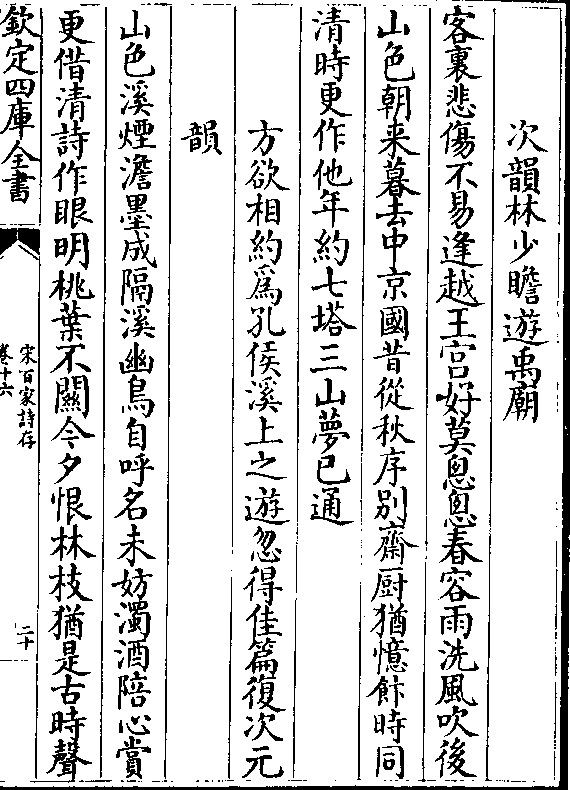 次韻林少瞻遊禹廟
客裏悲傷不易逢越王宫好莫匆匆春容雨洗風吹後
山色朝来暮去中京國昔從秋序别齋厨猶憶飰時同
清時更作他年約七塔三山夢已通
方欲相約為孔侯溪上之遊忽得佳篇復次元
韻
山色溪煙澹墨成隔溪幽鳥自呼名未妨濁酒陪心賞
更借清詩作眼明桃葉不闗今夕恨林枝猶是古時聲
欽定四庫全書
宋百家詩存
卷十六
二十